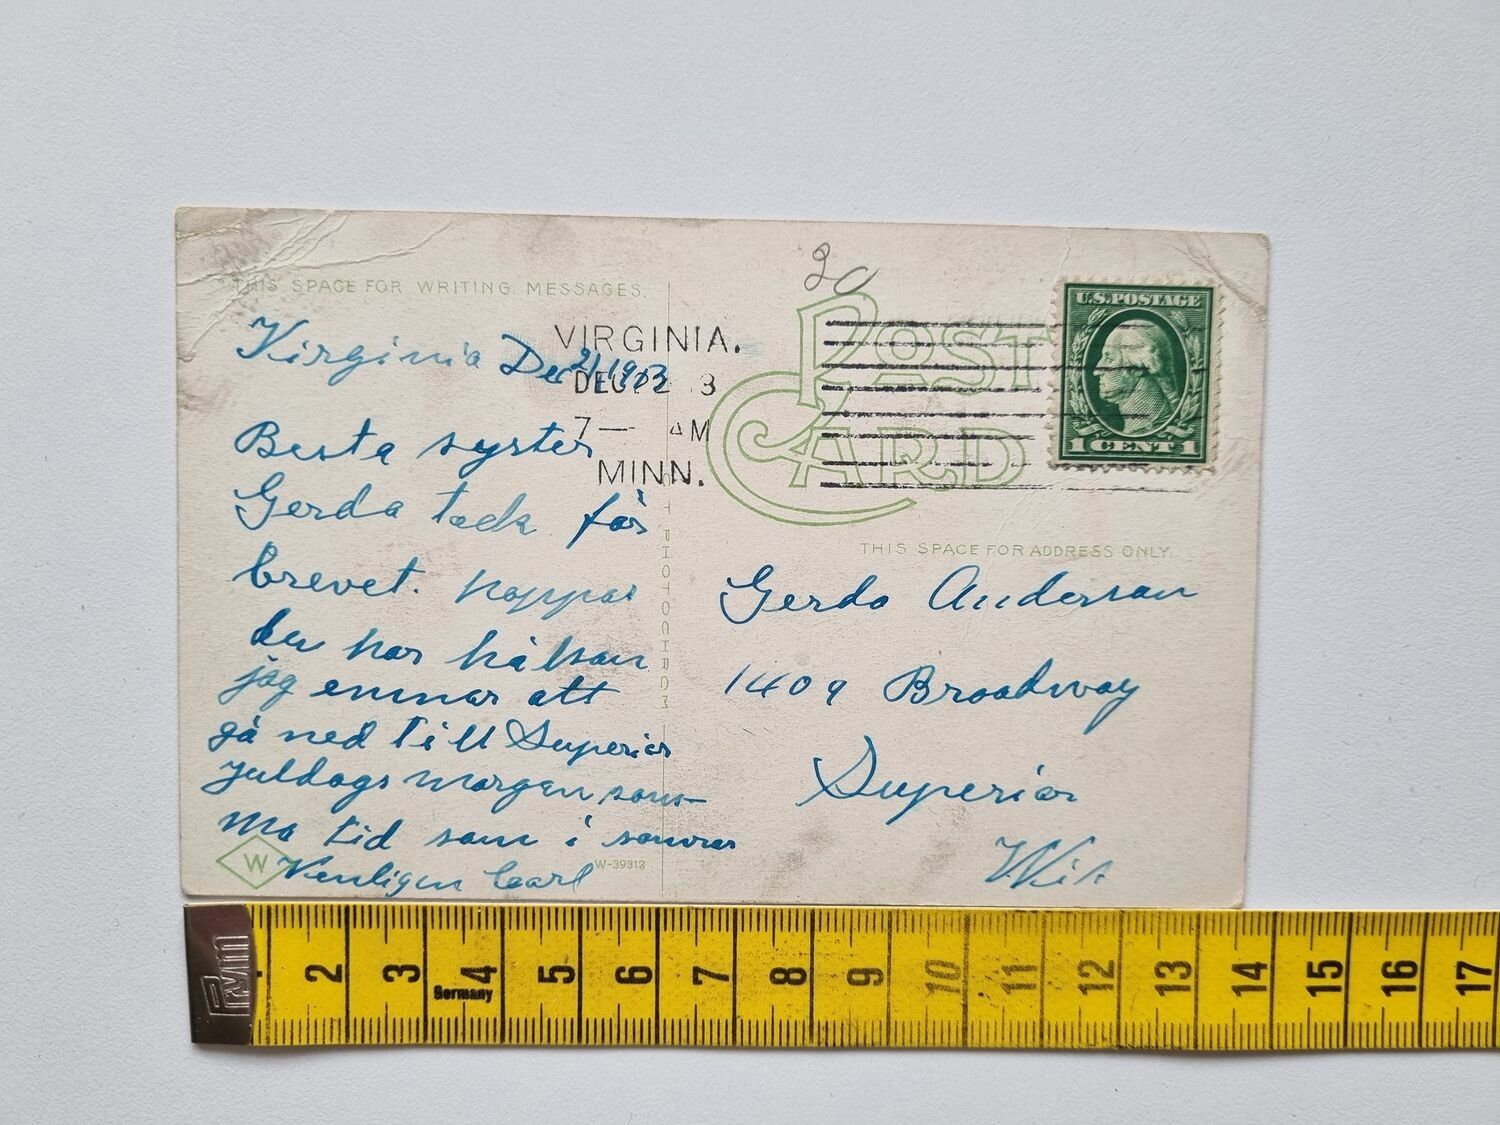 20
THIS SPACE FOR WRITING MESSAGES.
Virginia Dec 21 1913
VIRGINIA.
DEC 22 3
7— AM
MINN.
Besta syster
Gerda tack för
brevet. hoppas
du har hälsan
jag ämnar att
gå ned till Superior
juldags morgen sam-
ma tid som i somras
Venligen Carl
W
W-39313
PHOTOCHROM
POST CARD
U.S. POSTAGE
1 CENT 1
THIS SPACE FOR ADDRESS ONLY.
Gerda Anderson
1409 Broadway
Superior
Wis
Prym
Germany
2 3 4 5 6 7 8 9 10 11 12 13 14 15 16 17